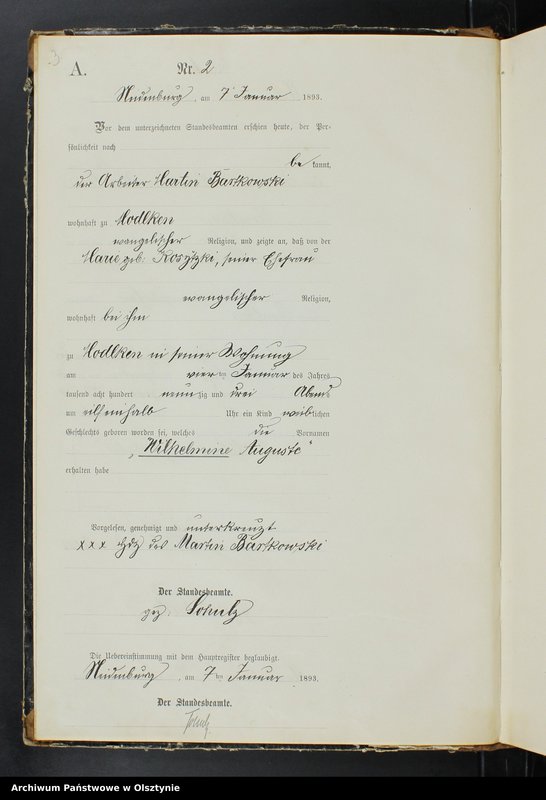 3
A.
Nr. 2
Neidenburg, am 7 ten Januar 1893.
Vor dem unterzeichneten Standesbeamten erschien heute, der Per-
sönlichkeit nach
be kannt,
der Arbeiter Martin Bartkowski
wohnhaft zu Modlken
evangelischer Religion, und zeigte an, daß von der
Marie geb: , seiner Ehefrau
evangelischer Religion,
wohnhaft bei ihm
zu Modlken in seiner Wohnung
am vier ten Januar des Jahres
tausend acht hundert neun zig und drei Abends
um elfeinhalb Uhr ein Kind weib lichen
Geschlechts geboren worden sei, welches die Vornamen
„Wilhelmine Auguste“
erhalten habe
Vorgelesen, genehmigt und unterkreuzt
x x x Hdz des Martin Bartkowski
Der Standesbeamte.
gez. Schulz
Die Uebereinstimmung mit dem Hauptregister beglaubigt.
Neidenburg, am 7 ten Januar 1893.
Der Standesbeamte.
Schulz
Archiwum Państwowe w Olsztynie